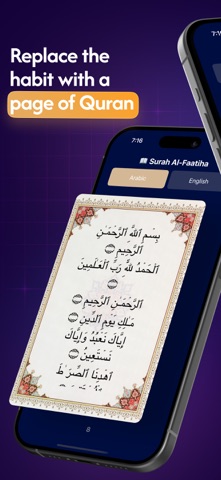 Replace the
habit with a
page of Quran
7:16
Surah Al-Faatiha
Arabic
English
بِسْمِ ٱللَّهِ ٱلرَّحْمَٰنِ
ٱلرَّحِيمِ
ٱلْحَمْدُ لِلَّهِ رَبِّ ٱلْعَٰلَمِينَ
ٱلرَّحْمَٰنِ ٱلرَّحِيمِ
مَٰلِكِ يَوْمِ ٱلدِّينِ
إِيَّاكَ نَعْبُدُ وَإِيَّاكَ
نَسْتَعِينُ
ٱهْدِنَا ٱلصِّرَٰطَ